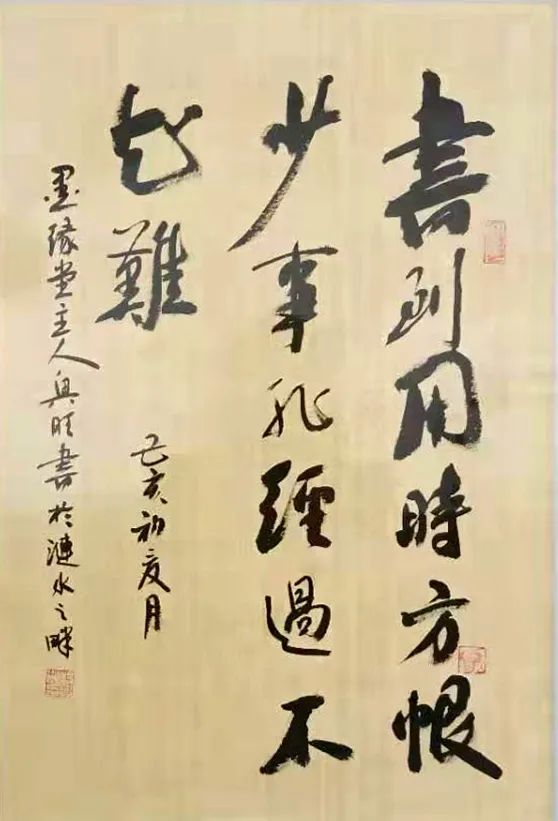 書到用時方恨
少事非經過不
知難
己亥初夏月
墨緣堂主人興旺書於漣水之畔